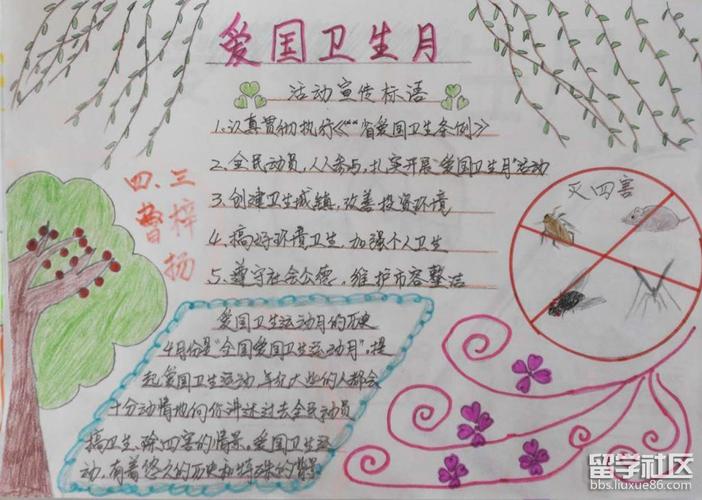 爱国卫生月
活动宣传标语
1.认真贯彻执行《**省爱国卫生条例》
2.全民动员,人人参与,扎实开展"爱国卫生月"活动
3.创建卫生城镇,改善投资环境
4.搞好环境卫生,加强个人卫生
5.遵守社会公德,维护市容整洁
四、三
曹梓扬
灭四害
爱国卫生运动月的历史
4月份是"全国爱国卫生运动月",提
起爱国卫生运动,年纪大些的人都会
十分动情地向你讲述过去全民动员
搞卫生、除四害的情景。爱国卫生运
动,有着悠久的历史和特殊的背景
留学社区
bbs.liuxue86.com